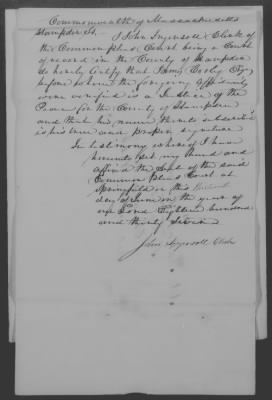 Commonwealth of Massachusetts
Hampden Ss.
I John Ingersoll Clerk of
the Common Pleas Court being a Court
of record in the County of Hampden
do hereby Certify that James
before whom the foregoing Affidavits
were is a Justice of the
Peace for the County of Hampden
and that his name thereto subscribed
is his true and proper signature
In testimony whereof I have
hereunto set my hand and
affixed the Seal of the said
Common Pleas Court at
Springfield on this
day of June in the year of
our Lord Eighteen hundred
and thirty
John Ingersoll Clerk